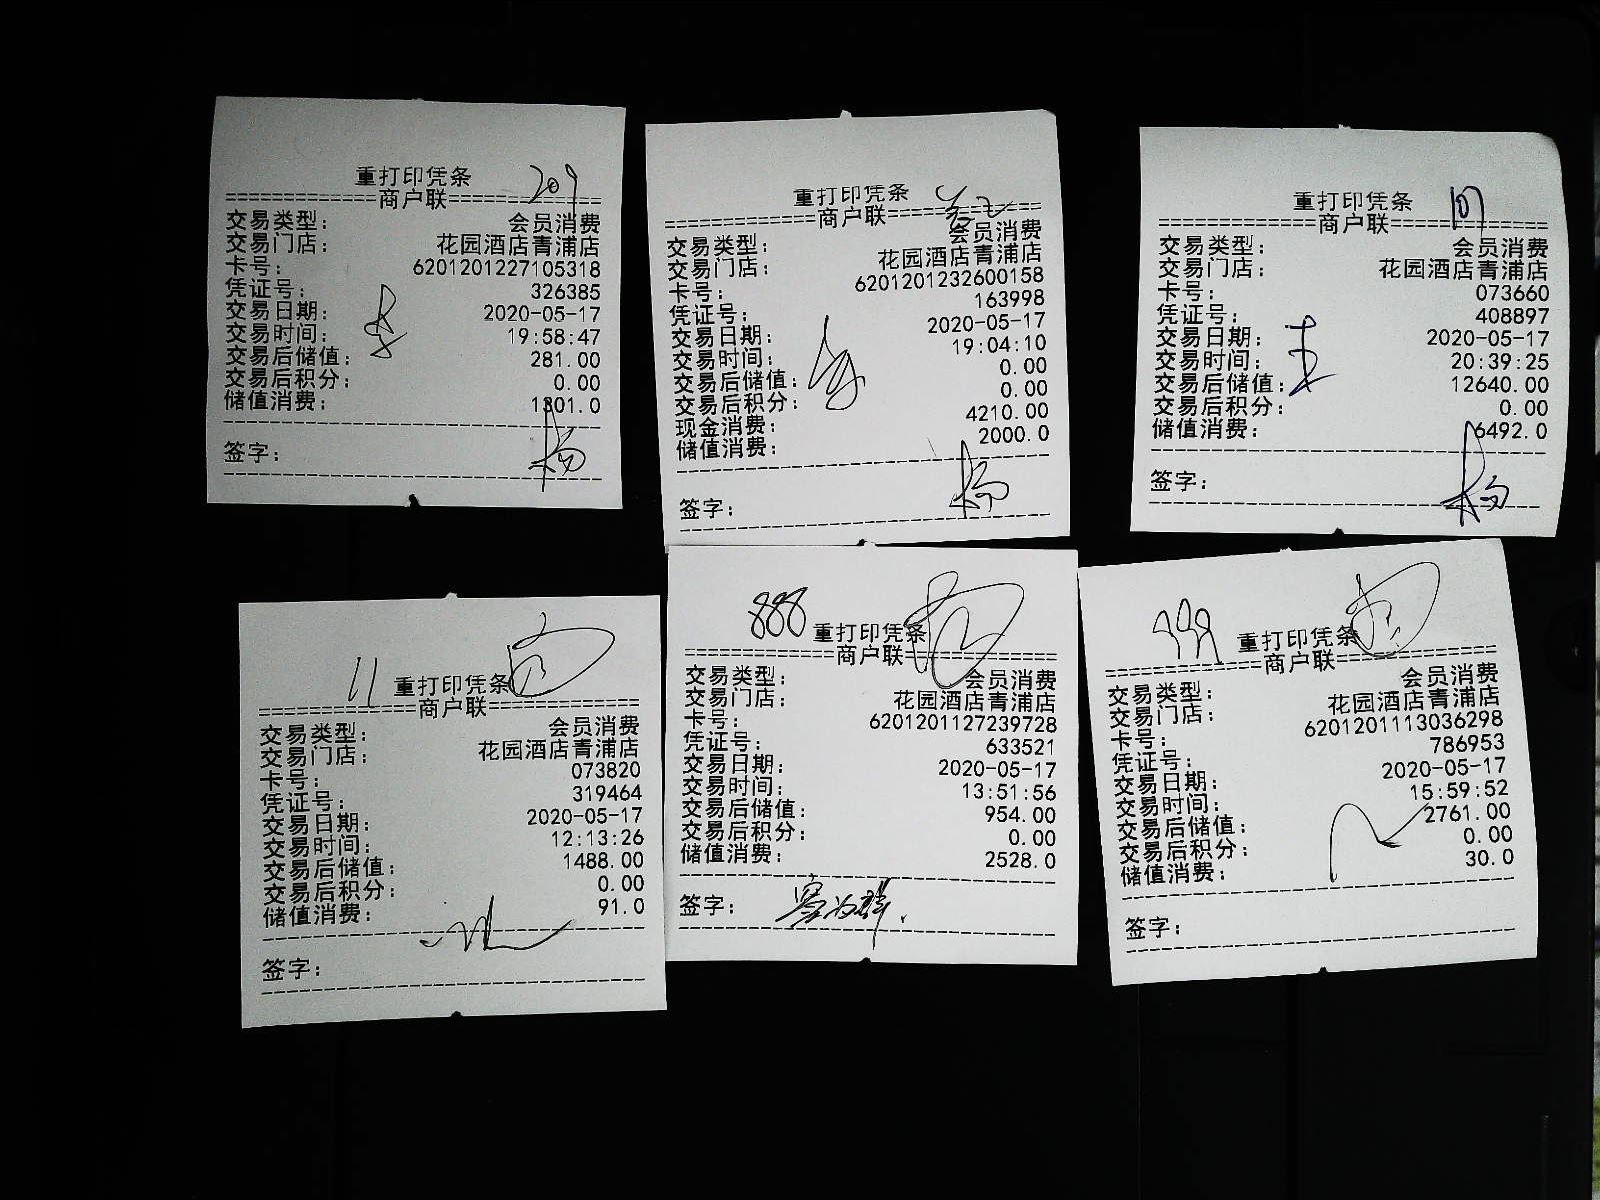 重打印凭条
209
商户联
交易类型: 会员消费
交易门店: 花园酒店青浦店
卡号: 6201201227105318
凭证号: 326385
交易日期: 2020-05-17
交易时间: 19:58:47
交易后储值: 281.00
交易后积分: 0.00
储值消费: 1301.0
签字:
重打印凭条
商户联
交易类型: 会员消费
交易门店: 花园酒店青浦店
卡号: 6201201232600158
凭证号: 163998
交易日期: 2020-05-17
交易时间: 19:04:10
交易后储值: 0.00
交易后积分: 0.00
现金消费: 4210.00
储值消费: 2000.0
签字:
重打印凭条
107
商户联
交易类型: 会员消费
交易门店: 花园酒店青浦店
卡号: 073660
凭证号: 408897
交易日期: 2020-05-17
交易时间: 20:39:25
交易后储值: 12640.00
交易后积分: 0.00
储值消费: 6492.0
签字:
11
重打印凭条
商户联
交易类型: 会员消费
交易门店: 花园酒店青浦店
卡号: 073820
凭证号: 319464
交易日期: 2020-05-17
交易时间: 12:13:26
交易后储值: 1488.00
交易后积分: 0.00
储值消费: 91.0
签字:
888
重打印凭条
商户联
交易类型: 会员消费
交易门店: 花园酒店青浦店
卡号: 6201201127239728
凭证号: 633521
交易日期: 2020-05-17
交易时间: 13:51:56
交易后储值: 954.00
交易后积分: 0.00
储值消费: 2528.0
签字:
重打印凭条
商户联
交易类型: 会员消费
交易门店: 花园酒店青浦店
卡号: 6201201113036298
凭证号: 786953
交易日期: 2020-05-17
交易时间: 15:59:52
交易后储值: 2761.00
交易后积分: 0.00
储值消费: 30.0
签字: